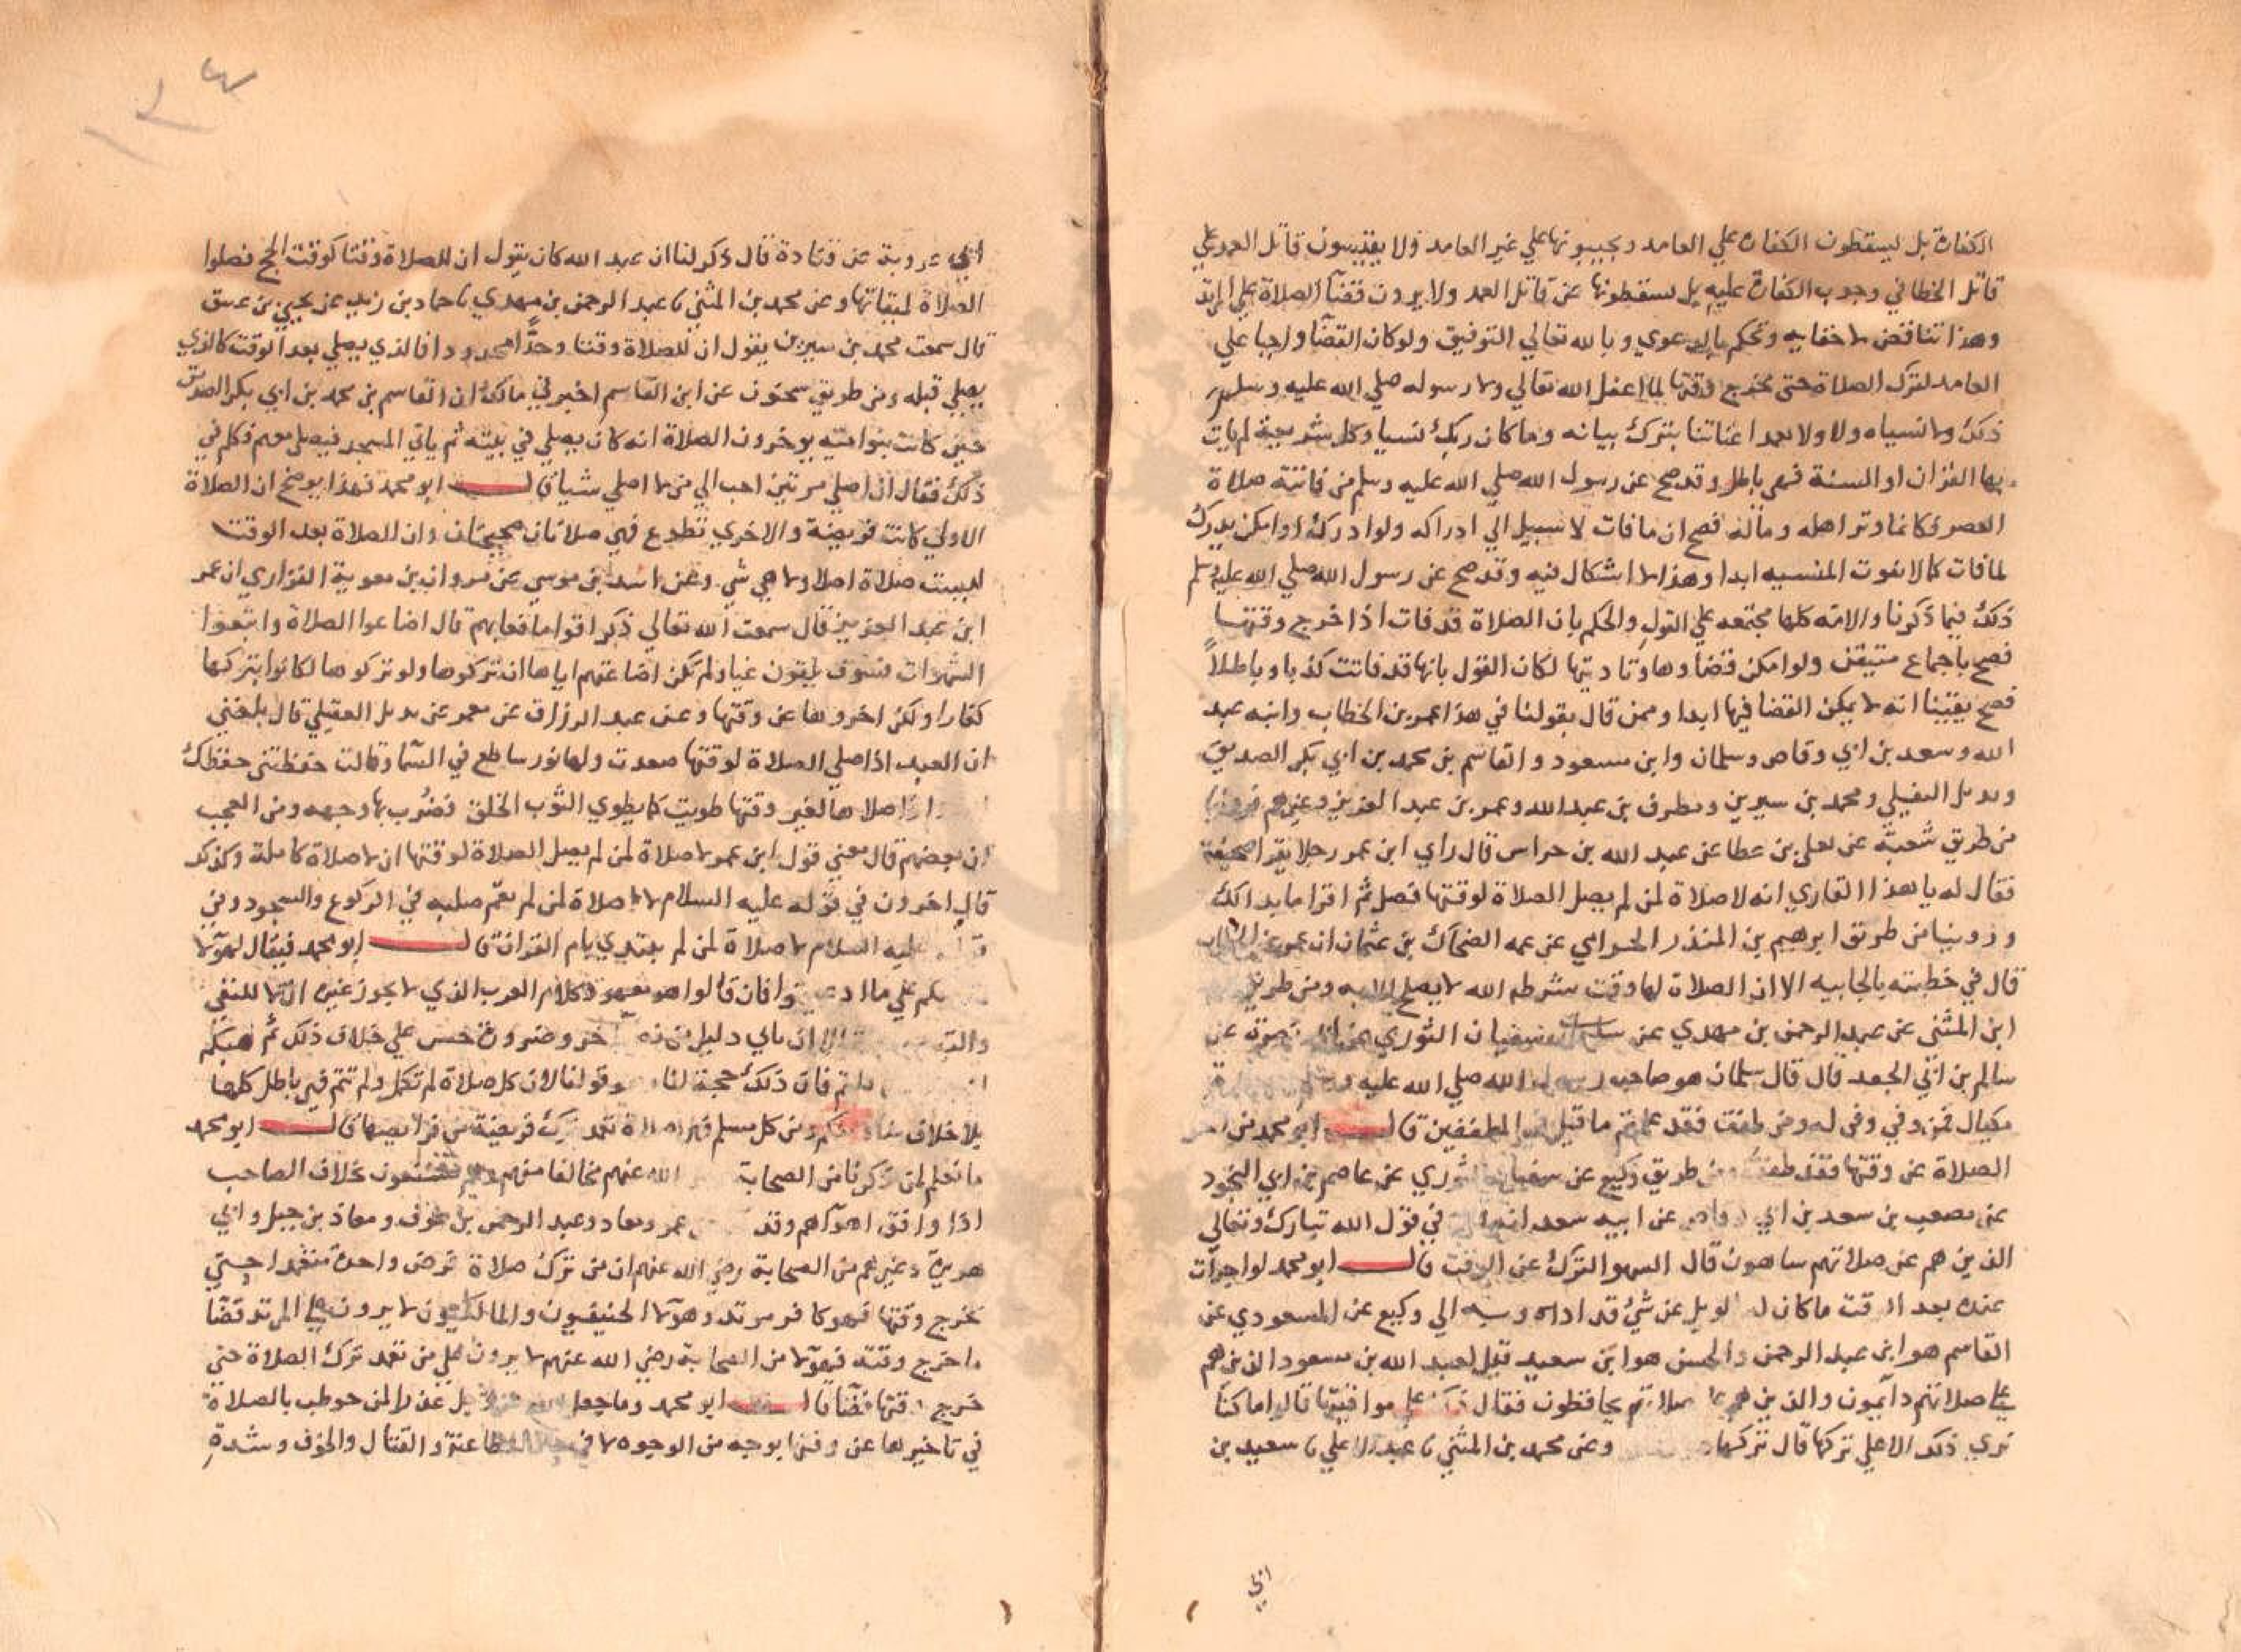 الكفارة بل يسقطون الكفارة علي العامد ويجيبونها علي غير العامد ولا يقيسون قاتل العمد علي
قاتل الخطا في وجوب الكفارة عليه بل يسقطونها عن قاتل العمد ولا يرون قضآ الصلاة علي المرتد
وهذا تناقض لا خفابه وتحكم بالدعوي وبالله تعالي التوفيق ولو كان القضآ واجبا علي
العامد لترك الصلاة حتى يخرج وقتها لما اغفل الله تعالي ولا رسوله صلي الله عليه وسلم
ذلك ولا نسياه ولا تعمدا اعناتنا بترك بيانه وما كان ربك نسيا وكل شريعة لم يات
بها القران او السنة فهي باطل وقد صح عن رسول الله صلي الله عليه وسلم من فاتته صلاة
العصر فكانما وتر اهله وماله فصح ان ما فات لا سبيل الي ادراكه ولو ادرك او امكن يدرك
لما فات كما لا تفوت المنسيه ابدا وهذا لا اشكال فيه وقد صح عن رسول الله صلي الله عليه وسلم
ذلك فيما ذكرنا والامه كلها مجتمعه علي القول والحكم بان الصلاة قد فات اذا خرج وقتها
فصح باجماع متيقن ولو امكن قضاوها وتاديتها لكان القول بانها قد فاتت كذبا وباطلاً
فصح يقيننا انه لا يمكن القضا فيها ابدا وممن قال بقولنا في هذا عمر بن الخطاب وابنه عبد
الله وسعد بن ابي وقاص وسلمان وابن مسعود والقاسم بن محمد بن ابي بكر الصديق
وبديل العقيلي ومحمد بن سيرين ومطرف بن عبد الله وعمر بن عبد العزيز وغيرهم فروينا
من طريق شعبة عن يعلي بن عطا عن عبد الله بن حراس قال راي ابن عمر رجلا يقرا صحيفة
فقال له يا هذا القاري انه لا صلاة لمن لم يصل الصلاة لوقتها فصل ثم اقرا ما بدا لك
وروينا من طريق ابرهيم بن المنذر الحزامي عن عمه الضحاك بن عثمان ان عمر بن الخطاب
قال في خطبته بالجابيه الا ان الصلاة لها وقت شرطه الله لا يصلح الا به ومن طريق
ابن المثنى عن عبد الرحمن بن مهدي عن سفيان الثوري عن ابي نصره عن
سالم بن ابي الجعد قال قال سلمان هو صاحب رسول الله صلي الله عليه وسلم
مكيال فمن وفي وفى له ومن طفف فقد علمتم ما قيل في المطففين قال ابو محمد من اخر
الصلاة عن وقتها فقد طفف ومن طريق وكيع عن سفيان الثوري عن عاصم بن ابي النجود
عن مصعب بن سعد بن ابي وقاص عن ابيه سعد انه قال في قول الله تبارك وتعالي
الذين هم عن صلاتهم ساهون قال السهو الترك عن الوقت قال ابو محمد لو اجزات
عنده بعد الوقت ما كان له الويل عن شئ قد اداه وبه الي وكيع عن المسعودي عن
القاسم هو ابن عبد الرحمن والحسن هو ابن سعيد قيل لعبد الله بن مسعود الذين هم
علي صلاتهم دآيمون والذين هم علي صلاتهم يحافظون فقال ذلك علي مواقيتها قالوا ما كنا
نري ذلك الا علي تركها قال تركها وعن محمد بن المثنى نا عبد الاعلي نا سعيد بن
ابي
ابي عروبة عن قتادة قال ذكر لنا ان عبد الله كان يقول ان للصلاة وقتا كوقت الحج فصلوا
الصلاة لميقاتها وعن محمد بن المثنى نا عبد الرحمن بن مهدي نا حماد بن زيد عن يحيي بن عتيق
قال سمعت محمد بن سيرين يقول ان للصلاة وقتا وحدًّا محدودا فالذي يصلي بعد الوقت كالذي
يصلي قبله ومن طريق سحنون عن ابن القاسم اخبرني مالك ان القاسم بن محمد بن ابي بكر الصديق
حين كانت بنو اميه يوخرون الصلاة انه كان يصلي في بيته ثم ياتي المسجد فيصلي معهم فكلم في
ذلك فقال ان اصلي مرتين احب الي من لا اصلي شيا قال ابو محمد فهذا يوضح ان الصلاة
الاولي كانت فريضة والاخري تطوع فهي صلاتان صحيحتان وان الصلاة بعد الوقت
ليست صلاة اصلا ولا هي شي وعن اسد بن موسي عن مروان بن معوية الفزاري ان عمر
ابن عبد العزيز قال سمعت الله تعالي ذكر اقواما فعابهم قال اضاعوا الصلاة واتبعوا
الشهوات فسوف يلقون غيا ولم تكن اضاعتهم اياها ان تركوها ولو تركوها لكانوا بتركها
كفارا ولكن اخروها عن وقتها وعن عبد الرزاق عن معمر عن بديل العقيلي قال بلغني
ان العبد اذا صلي الصلاة لوقتها صعدت ولها نور ساطع في السمآ وقالت حفظتني حفظك
اصلاها لغير وقتها طويت كما يطوي الثوب الخلق فضرب بها وجهه ومن العجب
ان بعضهم قال معني قول ابن عمر لا صلاة لمن لم يصل الصلاة لوقتها ان لا صلاة كاملة وكذلك
قال اخرون في قوله عليه السلام لا صلاة لمن لم يقم صلبه في الركوع والسجود وفي
عليه السلام لا صلاة لمن لم يقتدي بام القران قال ابو محمد فيقال لهولا
ما دعيتم وان قالوا هو معهود كلام العرب الذي لا يجوز غيره
الا ان ياتي دليل من نص اخر وضرورة حس علي خلاف ذلك ثم هبكم
فان ذلك حجة لنا وقولنا لان كل صلاة لم تكمل ولم تتم فهي باطل كلها
بلا خلاف منا ومنكم ومن كل مسلم قال ابو محمد
ما نعلم لمن ذكرنا من الصحابة الله عنهم مخالفا منهم وهم يشنعون بخلاف الصاحب
اذا وافق اهوآهم وقد عمر ومعاد وعبد الرحمن بن عوف ومعاذ بن جبل وابي
هريرة وغيرهم من الصحابة رضي الله عنهم ان من ترك صلاة فرض واحدة متعمدا حتى
يخرج وقتها فهو كافر مرتد وهولا الحنيفيون والمالكيون لا يرون علي المرتد قضآ
ما خرج وقته فهولا من الصحابة رضي الله عنهم لا يرون علي من تعمد ترك الصلاة حتي
خرج وقتها قضآ قال ابو محمد وما جعل الله عذرا لمن خوطب بالصلاة
في تاخيرها عن وقتها بوجه من الوجوه لا في والقتال والخوف وشدة